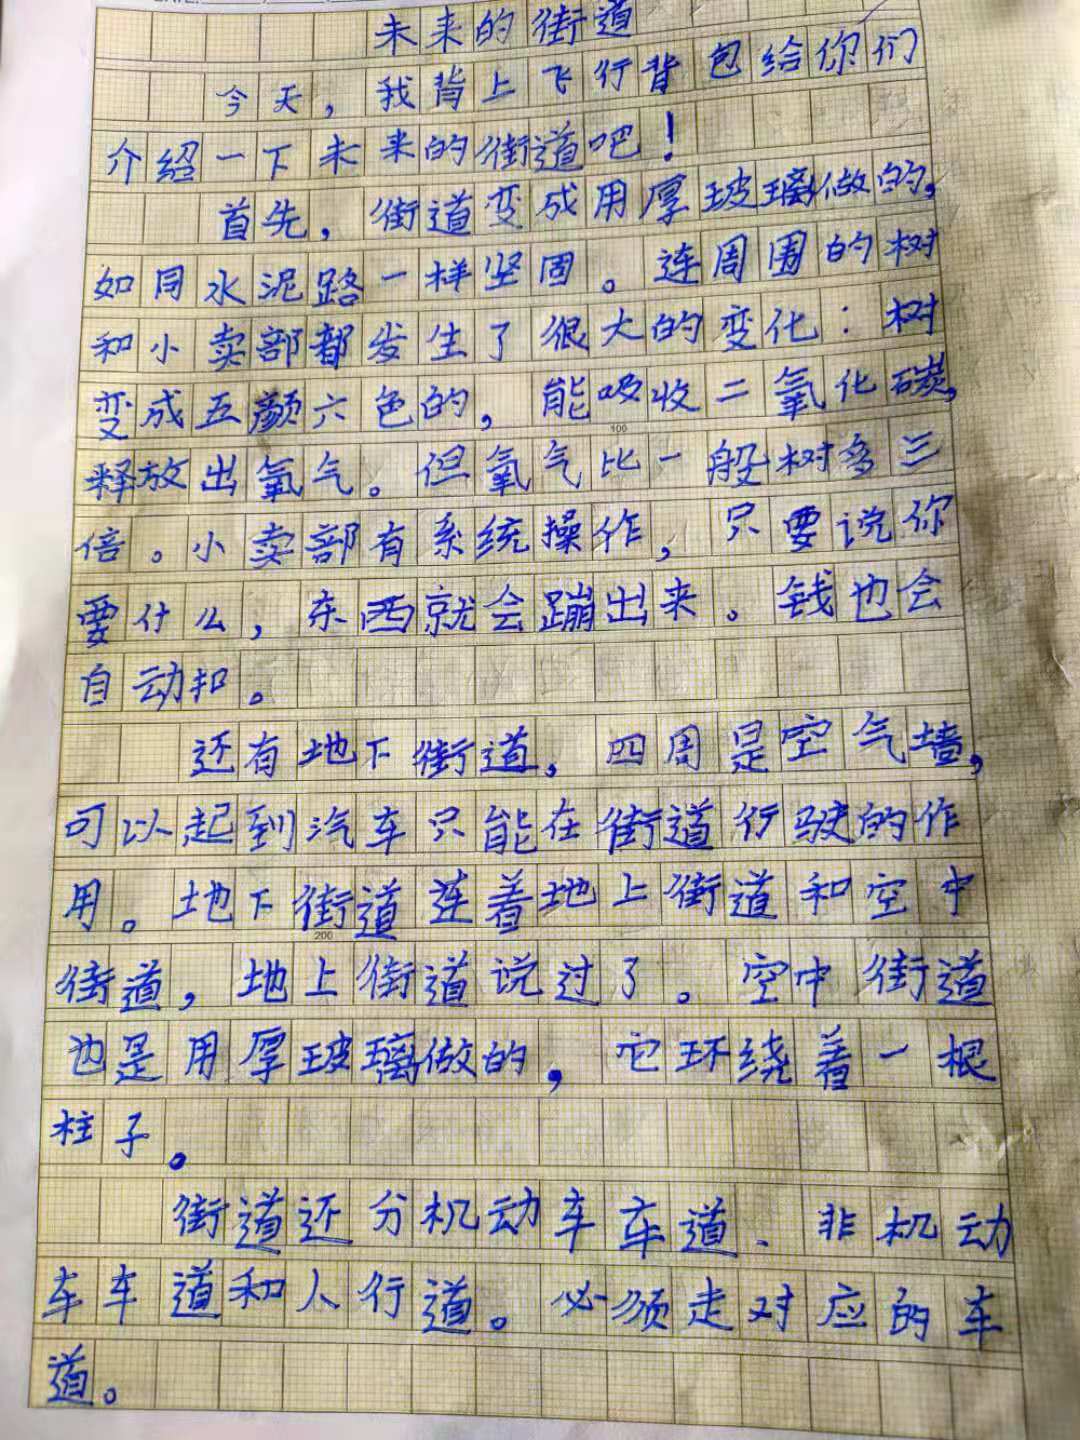 未来的街道
今天，我背上飞行背包给你们
介绍一下未来的街道吧！
首先，街道变成用厚玻璃做的，
如同水泥路一样坚固。连周围的树
和小卖部都发生了很大的变化：树
变成五颜六色的，能吸收二氧化碳，
100
释放出氧气。但氧气比一般树多三
倍。小卖部有系统操作，只要说你
要什么，东西就会蹦出来。钱也会
自动扣。
还有地下街道，四周是空气墙，
可以起到汽车只能在街道行驶的作
用。地下街道连着地上街道和空中
200
街道，地上街道说过了。空中街道
也是用厚玻璃做的，它环绕着一根
柱子。
街道还分机动车车道、非机动
车车道和人行道。必须走对应的车
道。